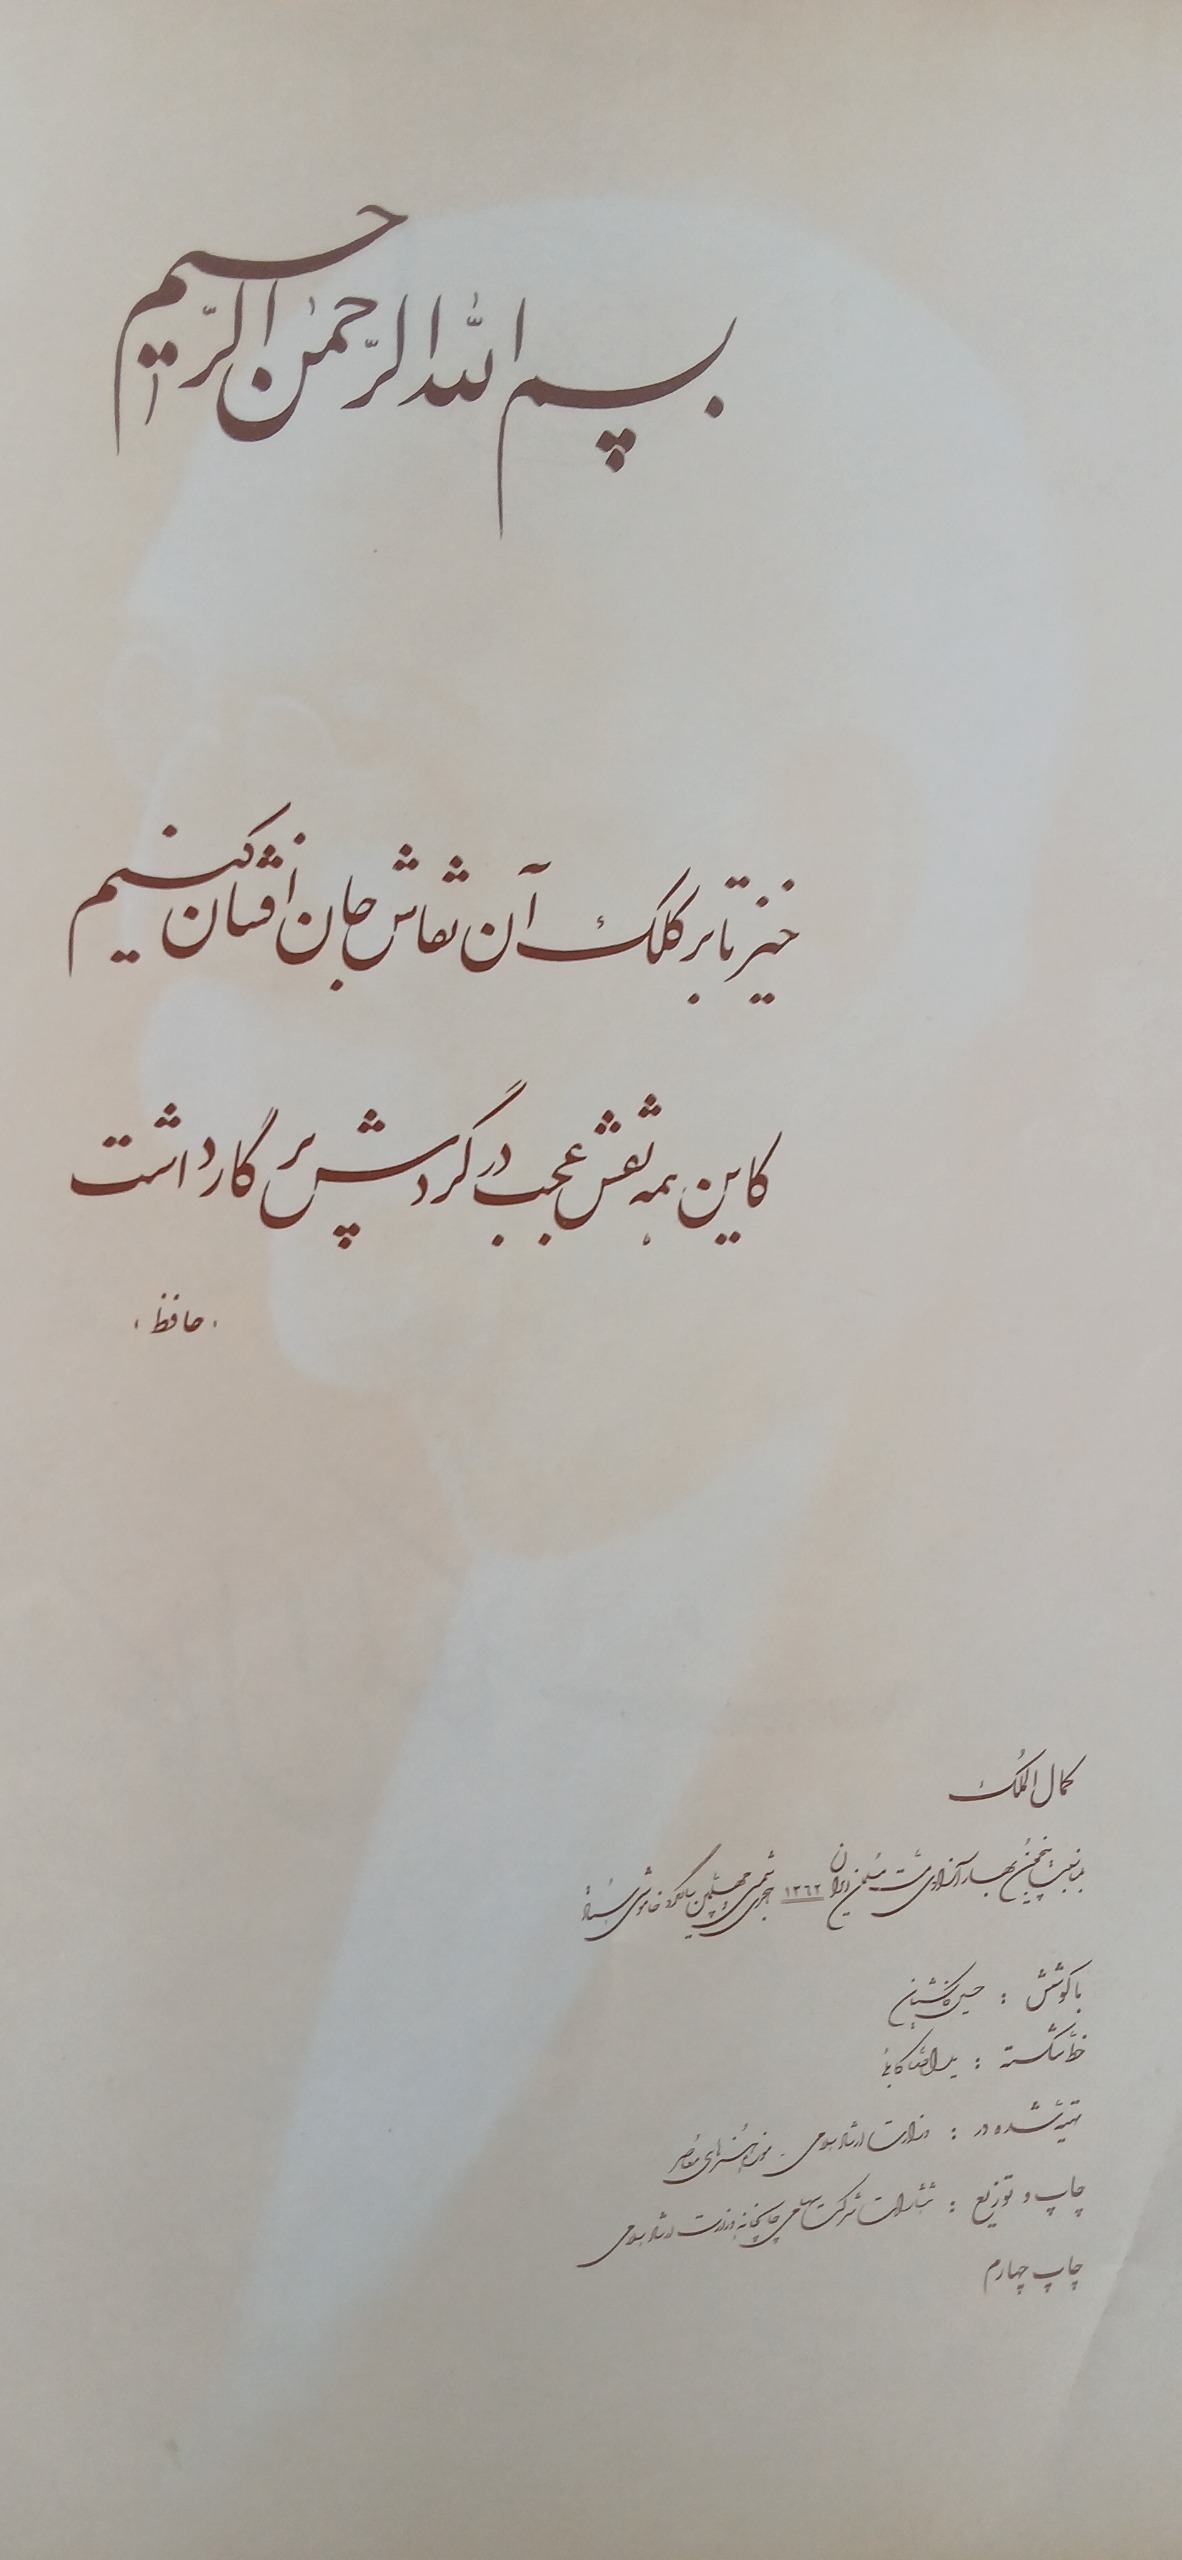 بسم الله الرّحمن الرّحیم
خیز تا بر کلک آن نقاش جان افشان کنیم
کاین همه نقش عجب در گردش پرگار داشت
حافظ
کمال‌الملک
بمناسبت پنجمین بهار آزادی ملت مسلمان ایران ۱۳۶۲ هجری شمسی و چهلمین سالگرد خاموشی استاد
با کوشش :
خط شکسته : یدالله کابلی
تهیه شده در : وزارت ارشاد اسلامی - موزه هنرهای معاصر
چاپ و توزیع : انتشارات شرکت سهامی چاپخانه وزارت ارشاد اسلامی
چاپ چهارم